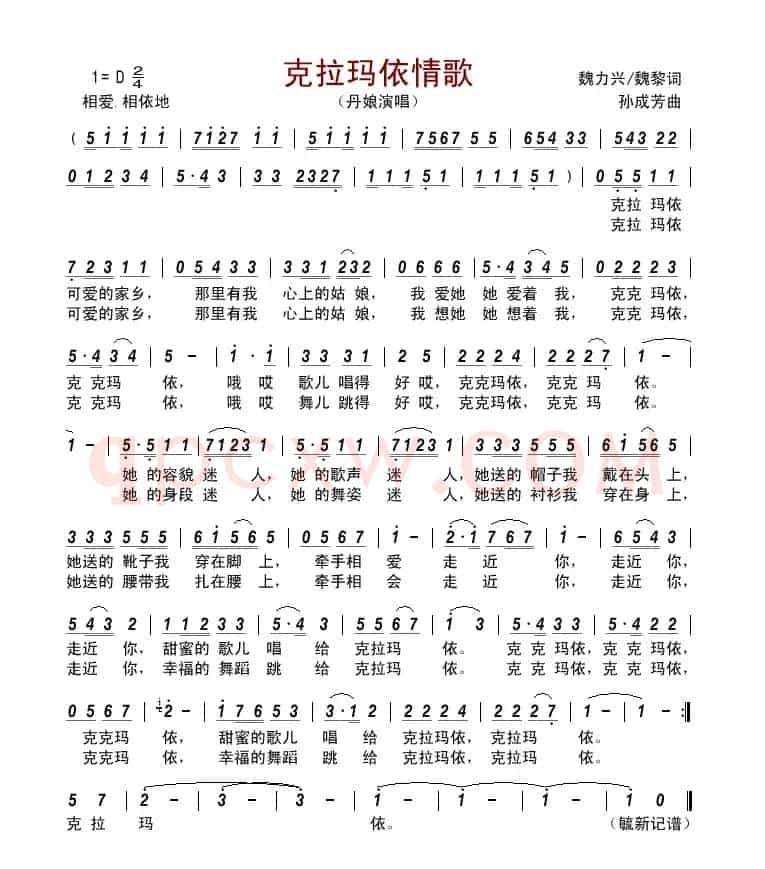 克拉玛依情歌
1=D 2/4
魏力兴/魏黎词
相爱.相依地
（丹娘演唱）
孙成芳曲
( 5 1 1 1 1 | 7 1 2 7 1 1 | 5 1 1 1 1 | 7 5 6 7 5 5 | 6 5 4 3 3 | 5 4 3 2 2 |
0 1 2 3 4 | 5· 4 3 | 3 3 2 3 2 7 | 1 1 1 5 1 | 1 1 1 5 1 ) | 0 5 5 1 1 |
克拉 玛依
克拉 玛依
7 2 3 1 1 | 0 5 4 3 3 | 3 3 1 2 3 2 | 0 6 6 6 | 5· 4 3 4 5 | 0 2 2 2 3 |
可爱的家乡， 那里有我 心上的姑 娘， 我 爱她 她 爱着 我， 克克 玛依，
可爱的家乡， 那里有我 心上的姑 娘， 我 想她 她 想着 我， 克克 玛依，
5· 4 3 4 | 5 - | 1· 1 | 3 3 3 3 | 2 5 | 2 2 2 3 | 2 2 2 7 | 1 - |
克 克玛 依， 哦 哎 歌儿 唱得 好 哎， 克克玛依， 克克 玛 依。
克 克玛 依， 哦 哎 舞儿 跳得 好 哎， 克克玛依， 克克 玛 依。
1 - | 5· 5 1 1 | 7 1 2 3 1 | 5· 5 1 1 | 7 1 2 3 1 | 3 3 3 5 5 5 | 6 i 5 6 5 |
她 的容貌 迷 人， 她 的歌声 迷 人，她送的 帽子我 戴在头 上，
她 的身段 迷 人， 她 的舞姿 迷 人，她送的 衬衫我 穿在身 上，
3 3 3 5 5 5 | 6 i 5 6 5 | 0 5 6 7 | i - | 2· i 7 6 7 | i - | 6 5 4 3 |
她送的 靴子我 穿在脚 上， 牵手相 爱 走 近 你， 走近 你，
她送的 腰带我 扎在腰 上， 牵手相 会 走 近 你， 走近 你，
5 4 3 2 | 1 1 2 3 3 | 5· 4 3 | 5 5 6 7 | i 3 | 5· 4 3 3 | 5· 4 2 2 |
走近 你， 甜蜜的 歌儿 唱 给 克拉玛 依。 克 克 玛依， 克 克 玛依，
走近 你， 幸福的 舞蹈 跳 给 克拉玛 依。 克 克 玛依， 克 克 玛依，
0 5 6 7 | 2 - | i 7 6 5 3 | 3· 1 2 | 2 2 2 3 | 2 2 2 7 | 1 - :||
克克玛 依， 甜蜜的歌儿 唱 给 克拉玛依， 克拉玛 依。
克克玛 依， 幸福的舞蹈 跳 给 克拉玛依， 克拉玛 依。
5 7 | 2 - | 3 - | 3 - | 1 - | 1 - | 1 - | 1 0 ||
克 拉 玛 依。 （毓新记谱）
qpcxw.COM